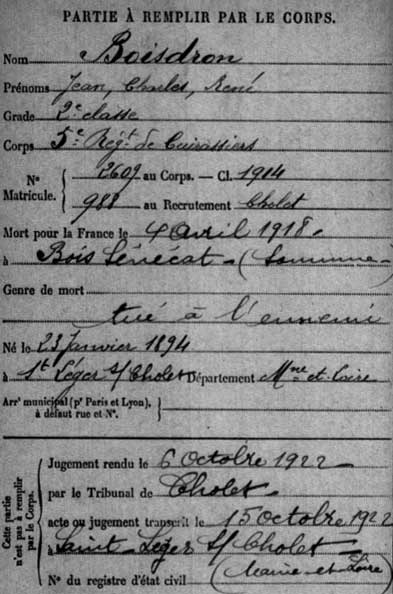 PARTIE À REMPLIR PAR LE CORPS.
Nom Boisdron
Prénoms Jean, Charles, René
Grade 2e classe
Corps 5e Régt de Cuirassiers
No Matricule. { 2609 au Corps. — Cl. 1914
988 au Recrutement Cholet
Mort pour la France le 4 avril 1918
à Bois Sénécat - (Somme)
Genre de mort
tué à l'ennemi
Né le 23 Janvier 1894
à St Léger s/ Cholet Département Mne et Loire
Arrt municipal (pr Paris et Lyon), à défaut rue et No. {
Cette partie n'est pas à remplir par le Corps. {
Jugement rendu le 6 octobre 1922
par le Tribunal de Cholet
acte ou jugement transcrit le 15 octobre 1922
à Saint-Léger s/ Cholet
No du registre d'état civil (Maine-et-Loire)